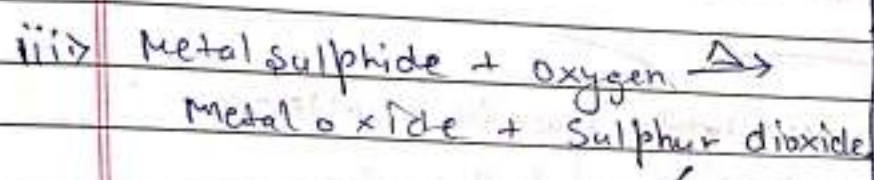 iii> Metal sulphide + oxygen △>
Metal oxide + Sulphur dioxide